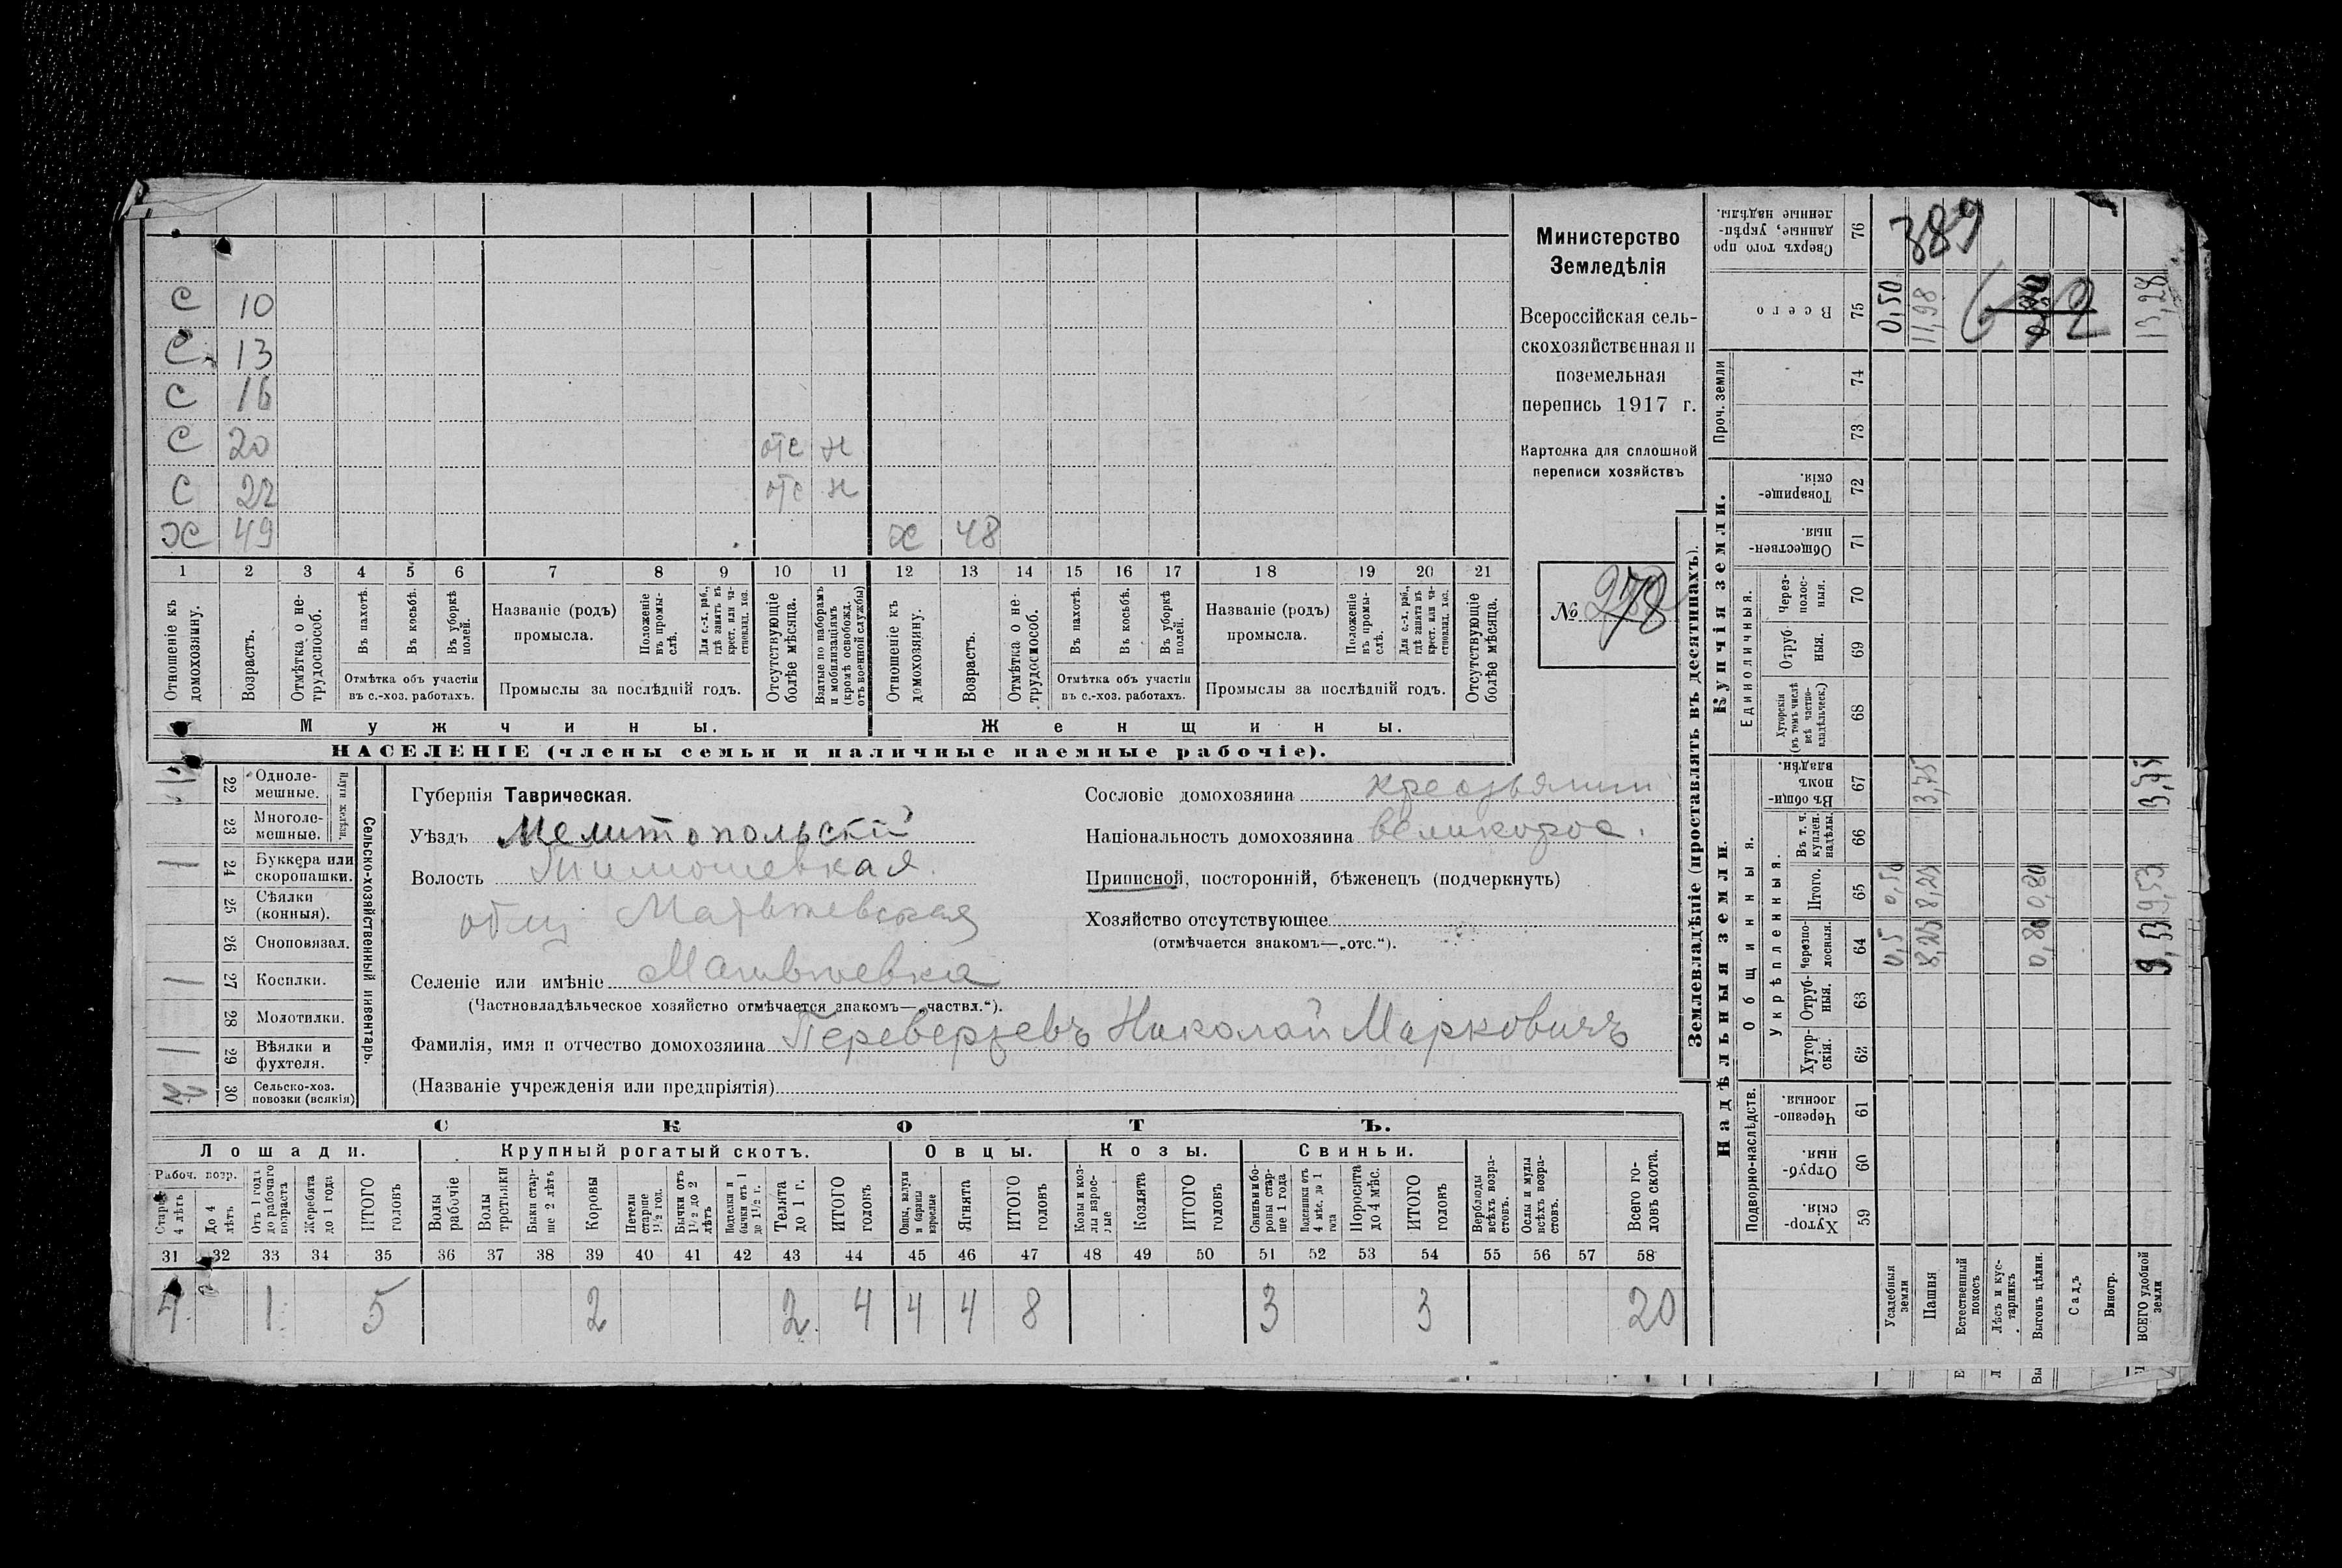 С 10
С 13
С 16
С 20 отс н
С 22 отс н
х 49 х 48
1 2 3 4 5 6 7 8 9 10 11 12 13 14 15 16 17 18 19 20 21
Отношеніе къ домохозяину.
Возрастъ.
Отмѣтка о нетрудоспособ.
Въ пахотѣ.
Въ косьбѣ.
Въ уборкѣ полей.
Отмѣтка объ участіи
въ с.-хоз. работахъ.
Названіе (родъ)
промысла.
Положеніе въ промыслѣ.
Для с.-х. раб., гдѣ занятъ въ крест. или частновлад. хоз.
Промыслы за послѣдній годъ.
Отсутствующіе болѣе мѣсяца.
Взятые по наборамъ и мобилизаціямъ (кромѣ освобожд. отъ военной службы)
Отношеніе къ домохозяину.
Возрастъ.
Отмѣтка о нетрудоспособ.
Въ пахотѣ.
Въ косьбѣ.
Въ уборкѣ полей.
Отмѣтка объ участіи
въ с.-хоз. работахъ.
Названіе (родъ)
промысла.
Положеніе въ промыслѣ.
Для с.-х. раб., гдѣ занята въ крест. или частновлад. хоз.
Промыслы за послѣдній годъ.
Отсутствующіе болѣе мѣсяца.
Мужчины. Женщины.
НАСЕЛЕНІЕ (члены семьи и наличные наемные рабочіе).
Министерство
Земледѣлія
Всероссійская сель-
скохозяйственная и
поземельная
перепись 1917 г.
Карточка для сплошной
переписи хозяйствъ
№ 78
Сельско-хозяйственный инвентарь.
Плуги желѣзн.
22 Однолемешные. 1
23 Многолемешные.
24 Буккера или скоропашки. 1
25 Сѣялки (конныя).
26 Сноповязал.
27 Косилки. 1
28 Молотилки.
29 Вѣялки и фухтеля. 1
30 Сельско-хоз. повозки (всякія) 2
Губернія Таврическая.
Уѣздъ Мелитопольскій
Волость Тимошевская
общ Матвѣевская
Селеніе или имѣніе Матвѣевка
(Частновладѣльческое хозяйство отмѣчается знакомъ—„частвл.“).
Фамилія, имя и отчество домохозяина Переверзевъ Николай Марковичъ
(Названіе учрежденія или предпріятія)
Сословіе домохозяина крестьянин
Національность домохозяина великорос.
Приписной, посторонній, бѣженецъ (подчеркнуть)
Хозяйство отсутствующее
(отмѣчается знакомъ—„отс.“).
СКОТЪ.
Лошади. Крупный рогатый скотъ. Овцы. Козы. Свиньи.
Рабоч. возр.
Старше 4 лѣтъ
До 4 лѣтъ
Отъ 1 года до рабочаго возраста
Жеребята до 1 года
ИТОГО головъ
Волы рабочіе
Волы гулевые
Быки старше 2 лѣтъ
Коровы
Нетели старше 1½ год.
Бычки отъ 1½ до 2 лѣтъ
Подтелки и бычки отъ 1 до 1½ г.
Телята до 1 г.
ИТОГО головъ
Овцы, валухи и бараны взрослые
Ягнята
ИТОГО головъ
Козы и козлы взрослые
Козлята
ИТОГО головъ
Свиньи и боровы старше 1 года
Подсвинки отъ 4 мѣс. до 1 года
Поросята до 4 мѣс.
ИТОГО головъ
Верблюды всѣхъ возрастовъ.
Ослы и мулы всѣхъ возрастовъ.
Всего головъ скота.
31 32 33 34 35 36 37 38 39 40 41 42 43 44 45 46 47 48 49 50 51 52 53 54 55 56 57 58
4 1 5 2 2 4 4 4 8 3 3 20
Землевладѣніе (проставлять въ десятинахъ).
Надѣльныя земли. Купчія земли.
Подворно-наслѣдств.
Общинныя.
Укрѣпленныя.
Единоличныя.
Проч. земли
59 Хуторскія.
60 Отрубныя.
61 Черезполосныя.
62 Хуторскія.
63 Отрубныя.
64 Черезполосныя.
65 Итого.
66 Въ т. ч. куплен. надѣлы.
67 Въ общинномъ владѣн.
68 Хуторскія (въ томъ числѣ всѣ частновладѣльческ.)
69 Отрубныя.
70 Черезполосныя.
71 Общественныя
72 Товарищескія.
73
74
75 Всего
76 Сверхъ того проданные, укрѣпленные надѣлы.
389
Усадебныя земли 0,5 0,50 0,50
Пашня 8,23 8,23 3,75 11,98
Естественный покосъ
Лѣсъ и кустарникъ
Выгонъ цѣлин. 0,80 0,80
Садъ
Виногр.
ВСЕГО удобной земли 9,53 9,53 3,75 13,28